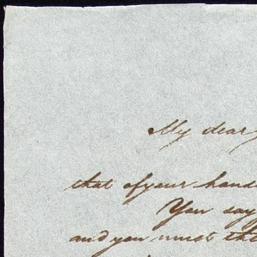 My dear
that of your hand
You say
and you must th